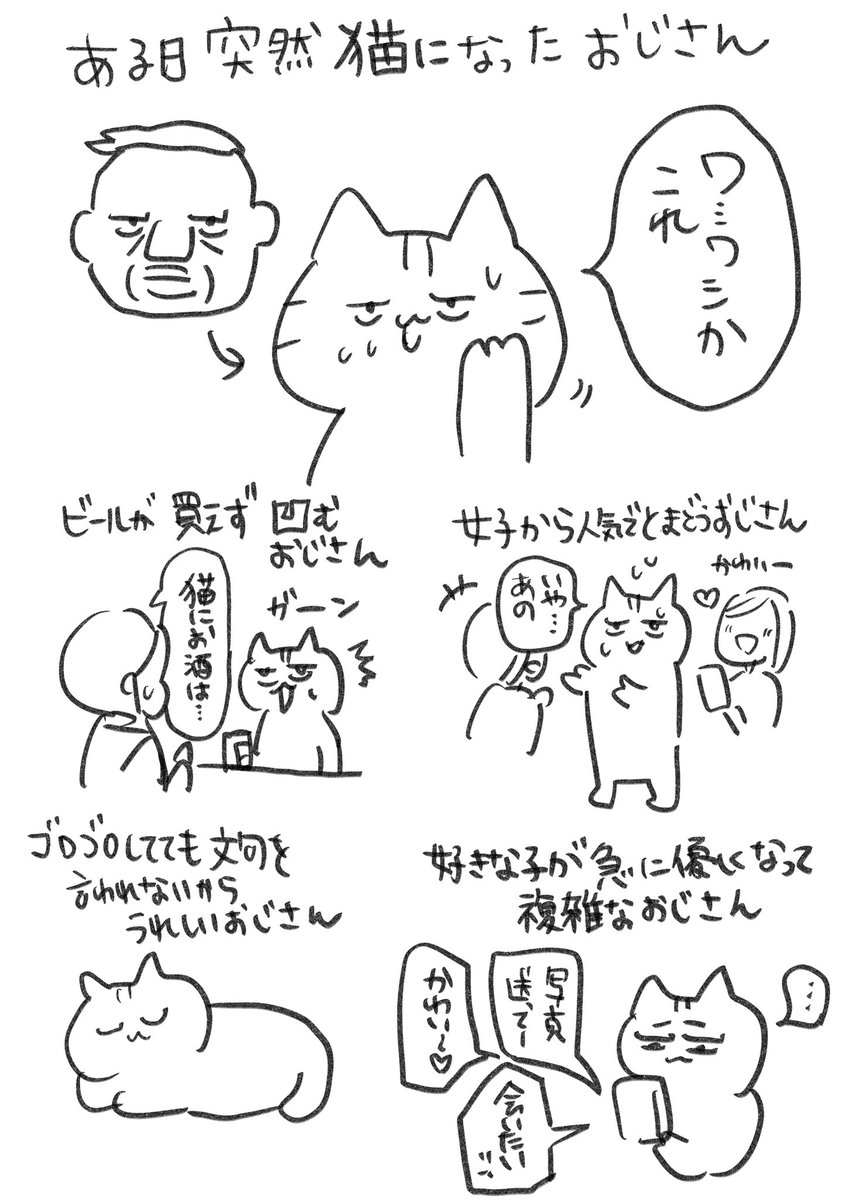 ある日 突然 猫になった おじさん
ワ…ワシか
これ
ビールが 買えず 凹む
おじさん
猫にお酒は…
ガーン
女子から人気でとまどうおじさん
かわいー
いや…
あの
ゴロゴロしてても 文句を
言われないから
うれしいおじさん
好きな子が 急に優しくなって
複雑なおじさん
写真
送ってー
かわい〜♡
会いたい
…